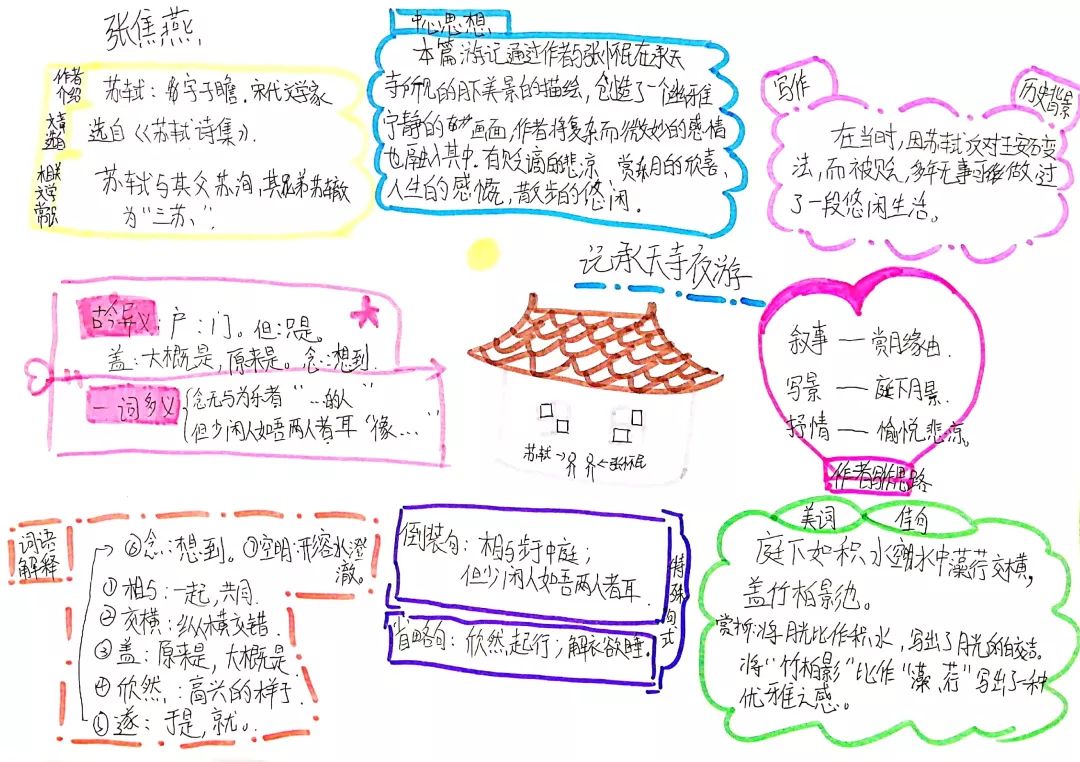 张焦燕
作者
介绍
苏轼：字子瞻，宋代文学家
文章
选自
选自《苏轼诗集》.
相关
文学
常识
苏轼与其父苏洵，其兄弟苏辙
为“三苏、”.
中心思想
本篇游记通过作者与张怀民在承天
寺所见的月下美景的描绘，创造了一个幽雅
宁静的画面，作者将复杂而微妙的感情
也融入其中.有贬谪的悲凉 赏月的欣喜、
人生的感慨，散步的悠闲.
写作
历史背景
在当时，因苏轼反对王安石变
法，而被贬，多年无事可做，过
了一段悠闲生活。
记承天寺夜游
古今异义：户：门。但：只是。
盖：大概是，原来是。念：想到.
一词多义
念无与为乐者“…的人”
但少闲人如吾两人者耳“像…”
苏轼→
←张怀民
叙事—赏月缘由.
写景—庭下月景.
抒情—愉悦悲凉。
作者写作思路
词语
解释
⑥念：想到。⑦空明：形容水澄
澈。
①相与：一起，共同.
②交横：纵横交错.
③盖：原来是，大概是
④欣然，：高兴的样子
⑤遂：于是，就。.
倒装句：相与步于中庭；
但少闲人如吾两人者耳.
省略句：欣然起行；解衣欲睡.
特殊句式
美词
佳句
庭下如积水空明水中藻荇交横，
盖竹柏景也。
赏析：将月光比作积水，写出了月光的皎洁。
将“竹柏影”比作“藻、荇”写出了一种
优雅之感。